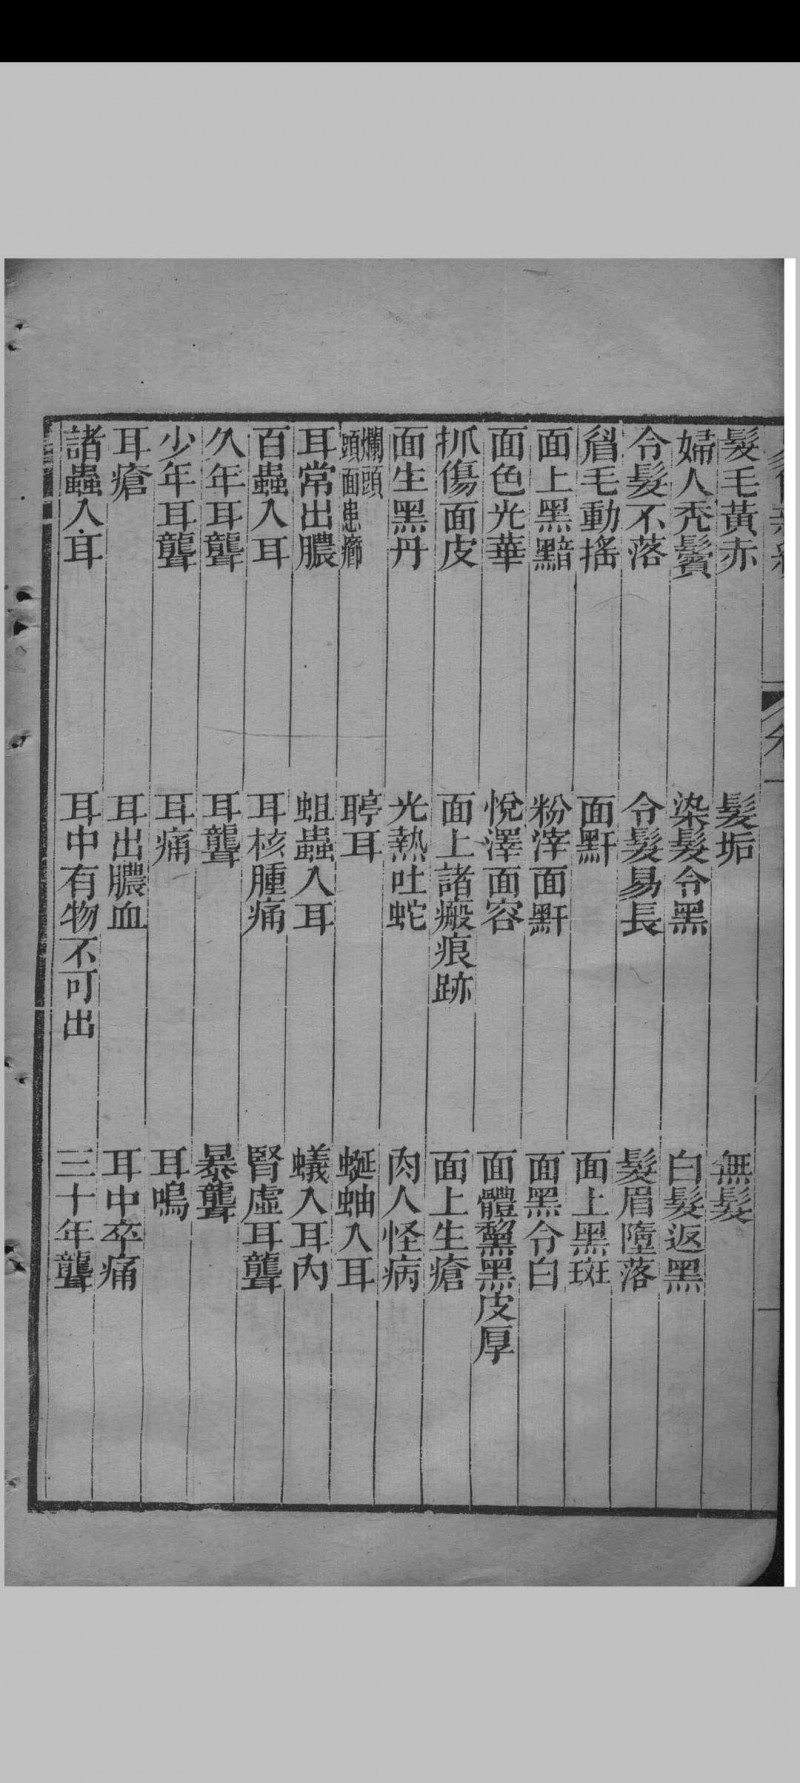 髮毛黃赤 髮垢 無髮
婦人禿鬢 染髮令黑 白髮返黑
令髮不落 令髮易長 髮眉墮落
眉毛動搖 面䵟 面上黑斑
面上黑黯 粉滓面䵟 面黑令白
面色光華 悅澤面容 面體黧黑皮厚
抓傷面皮 面上諸瘢痕跡 面上生瘡
面生黑丹 光熱吐蛇 肉人怪病
爛頭 頭面患癤 聤耳 蜒蚰入耳
耳常出膿 蛆蟲入耳 蟻入耳內
百蟲入耳 耳核腫痛 腎虛耳聾
久年耳聾 耳聾 暴聾
少年耳聾 耳痛 耳鳴
耳瘡 耳出膿血 耳中卒痛
諸蟲入耳 耳中有物不可出 三十年聾